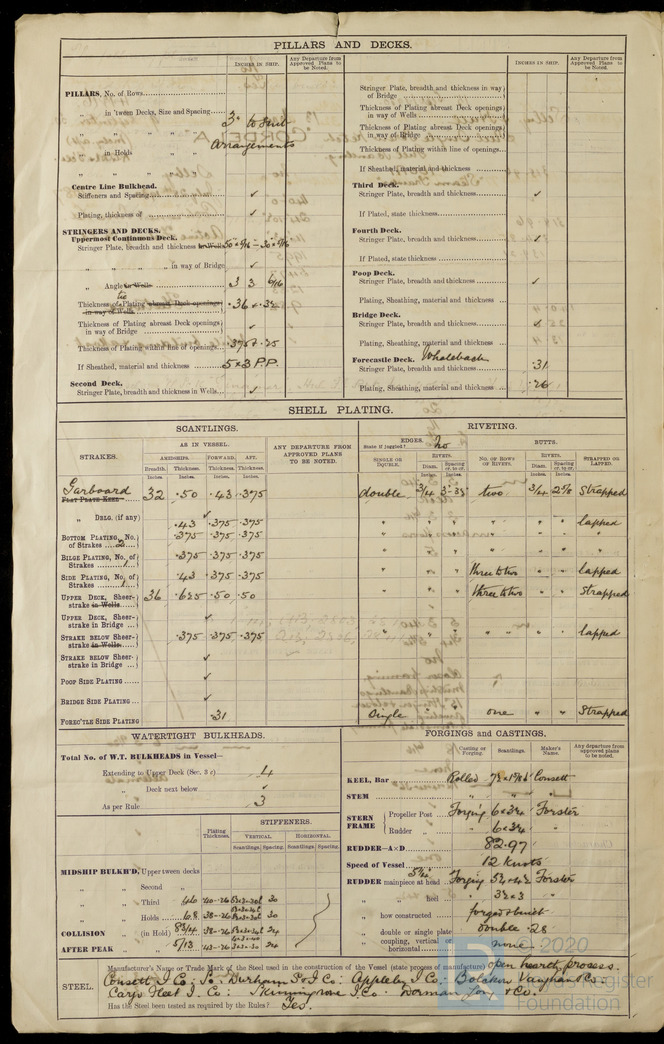 PILLARS AND DECKS.
INCHES IN SHIP.
Any Departure from Approved Plans to be Noted.
PILLARS, No. of Rows
" in 'tween Decks, Size and Spacing
3" to suit
" " " "
arrangements
" in Holds " "
" " " "
Centre Line Bulkhead.
Stiffeners and Spacing ✓
Plating, thickness of ✓
STRINGERS AND DECKS.
Uppermost Continuous Deck.
Stringer Plate, breadth and thickness in Wells
" " " " in way of Bridge ✓
" Angle in Wells 3 3 6/16
Thickness of Plating abreast Deck openings in way of Wells .36 +
Thickness of Plating abreast Deck openings in way of Bridge ✓
Thickness of Plating within line of openings .375 + .25
If Sheathed, material and thickness 5 x 3 P.P.
Second Deck.
Stringer Plate, breadth and thickness in Wells ✓
INCHES IN SHIP.
Any Departure from Approved Plans to be Noted.
Stringer Plate, breadth and thickness in way of Bridge
Thickness of Plating abreast Deck openings in way of Wells
Thickness of Plating abreast Deck openings in way of Bridge
Thickness of Plating within line of openings
If Sheathed, material and thickness
Third Deck.
Stringer Plate, breadth and thickness ✓
If Plated, state thickness
Fourth Deck.
Stringer Plate, breadth and thickness ✓
If Plated, state thickness
Poop Deck.
Stringer Plate, breadth and thickness ✓
Plating, Sheathing, material and thickness
Bridge Deck.
Stringer Plate, breadth and thickness ✓
Plating, Sheathing, material and thickness
Forecastle Deck. Whaleback
Stringer Plate, breadth and thickness .31
Plating, Sheathing, material and thickness .26
SHELL PLATING.
SCANTLINGS.
RIVETING.
STRAKES.
AS IN VESSEL.
AMIDSHIPS. FORWARD. AFT.
Breadth. Thickness. Thickness. Thickness.
Inches. Inches. Inches. Inches.
ANY DEPARTURE FROM APPROVED PLANS TO BE NOTED.
EDGES. No
State if joggled?
SINGLE OR DOUBLE.
RIVETS.
Diam. Spacing cr. to cr.
Inches. Inches.
BUTTS.
No. OF ROWS OF RIVETS.
RIVETS.
Diam. Spacing cr. to cr.
Inches. Inches.
STRAPPED OR LAPPED.
Garboard
FLAT PLATE KEEL 32 .50 .43 .375 double 3/4 two 3/4 2 5/8 Strapped
" DBLG. (if any) ✓
.43 .375 .375 " " " " " " lapped
BOTTOM PLATING, No. of Strakes 2 .375 .375 .375 " " " " " " "
BILGE PLATING, No. of Strakes 1 .375 .375 .375
SIDE PLATING, No. of Strakes 1 .43 .375 .375 " " " three to two " " lapped
UPPER DECK, Sheerstrake in Wells 36 .625 .50 .50 " " " three to two " " strapped
UPPER DECK, Sheerstrake in Bridge ✓
STRAKE BELOW Sheerstrake in Wells .375 .375 .375 " " " " " " " lapped
STRAKE BELOW Sheerstrake in Bridge ✓
POOP SIDE PLATING ✓
BRIDGE SIDE PLATING ✓
FOREC'TLE SIDE PLATING .31 Single " one " " Strapped
WATERTIGHT BULKHEADS.
Total No. of W.T. BULKHEADS in Vessel—
Extending to Upper Deck (Sec. 3 c) 4
" Deck next below ✓
As per Rule 3
Plating Thickness.
STIFFENERS.
VERTICAL. HORIZONTAL.
Scantlings. Spacing. Scantlings. Spacing.
MIDSHIP BULKH'D, Upper tween decks
" " Second "
" " Third " 30
" " Holds 30
COLLISION " (in Hold) 24
AFTER PEAK " " 5/13 24
FORGINGS and CASTINGS.
Casting or Forging. Scantlings. Maker's Name. Any departure from approved plans to be noted.
KEEL, Bar Rolled Consett
STEM " " "
STERN FRAME
Propeller Post Forging 6 x 3¼ Forster
Rudder " " 6 x 3¼ "
RUDDER—A×D 82.97
Speed of Vessel 12 Knots
RUDDER mainpiece at head Forging Forster
" " heel
" how constructed forged & built
" double or single plate double .28
" coupling, vertical or horizontal none
STEEL.
Manufacturer's Name or Trade Mark of the Steel used in the construction of the Vessel (state process of manufacture) open hearth process.
Consett I Co: So. Durham S & I Co: Appleby I Co: Bolckow Vaughan & Co.
Cargo Fleet I. Co: Skinningrove I Co: Dorman Long & Co.
Has the Steel been tested as required by the Rules? Yes.
LR
2020
Lloyd's Register
Foundation